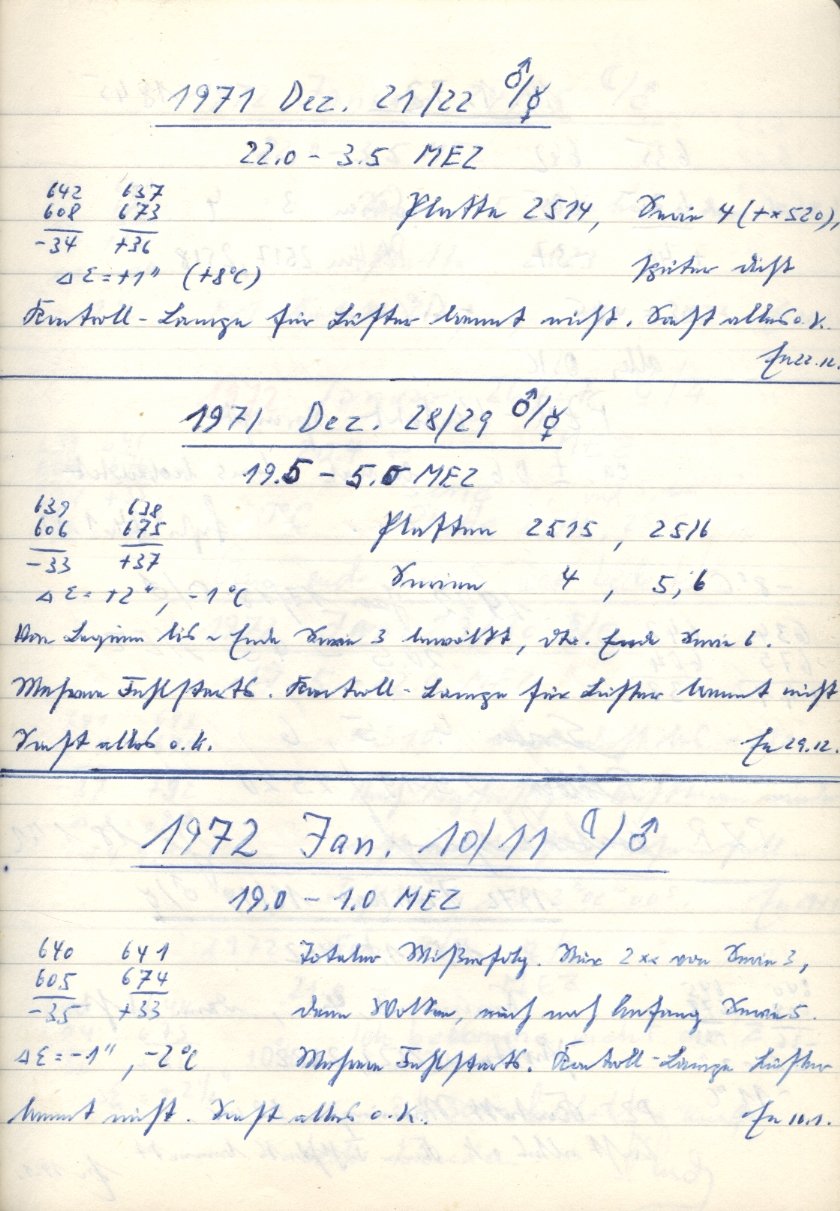 1971 Dez. 21/22 ♂/☿
22.0 – 3.5 MEZ
642 637
608 673 Platte 2514, Serie 4 (+ × 520),
-34 +36
Δε = +1" (+8°C) später dicht
Kontroll-Lampe für Lüfter brennt nicht. Sonst alles o.k.
22.12.
1971 Dez. 28/29 ♂/☿
19.5 – 5.5 MEZ
639 638
606 675 Platten 2515, 2516
-33 +37
Serien 4, 5, 6
Δε = +2", -1°C
Von Beginn bis ~ Ende Serie 3 bewölkt, dto. Ende Serie 6.
Mehrere Fehlstarts. Kontroll-Lampe für Lüfter brennt nicht
Sonst alles o.k. 29.12.
1972 Jan. 10/11 ☾/♂
19.0 – 1.0 MEZ
640 641 Totaler Mißerfolg. Nur 2 ×× von Serie 3,
605 674
-35 +33 dann Wolken, auch nach Anfang Serie 5.
Δε = -1", -2°C Mehrere Fehlstarts. Kontroll-Lampe Lüfter
brennt nicht. Sonst alles o.k. 10.1.